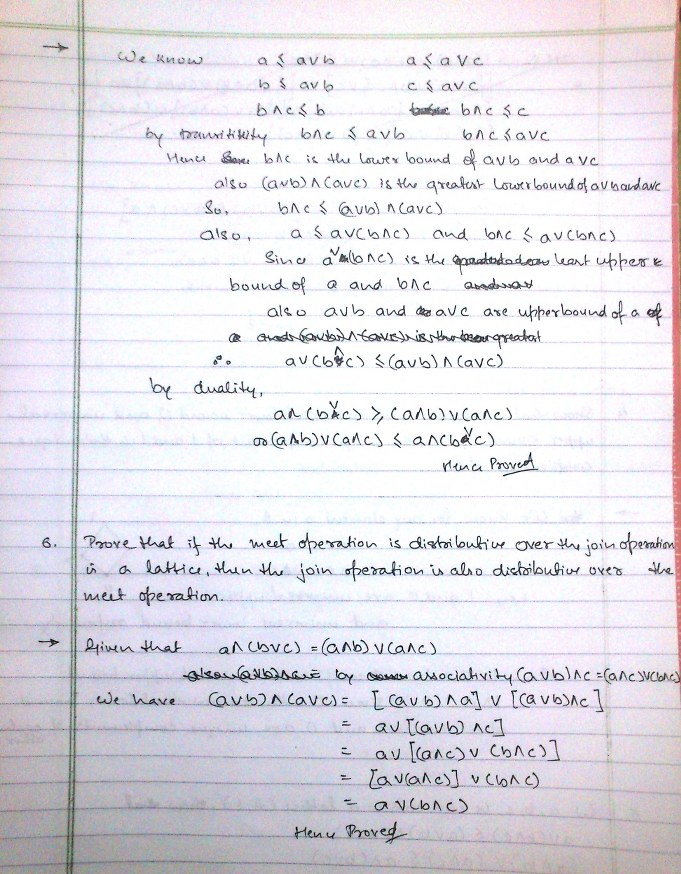 → We know a ≤ a∨b a ≤ a∨c
b ≤ a∨b c ≤ a∨c
b∧c ≤ b b∧c ≤ c
by transitivity b∧c ≤ a∨b b∧c ≤ a∨c
Hence b∧c is the lower bound of a∨b and a∨c
also (a∨b)∧(a∨c) is the greatest lower bound of a∨b and a∨c
So, b∧c ≤ (a∨b)∧(a∨c)
also, a ≤ a∨(b∧c) and b∧c ≤ a∨(b∧c)
Since a∨(b∧c) is the least upper
bound of a and b∧c
also a∨b and a∨c are upperbound of a
∴ a∨(b∧c) ≤ (a∨b)∧(a∨c)
by duality,
a∧(b∨c) ≥ (a∧b)∨(a∧c)
or (a∧b)∨(a∧c) ≤ a∧(b∨c)
Hence Proved
6. Prove that if the meet operation is distributive over the join operation
in a lattice, then the join operation is also distributive over the
meet operation.
→ Given that a∧(b∨c) = (a∧b)∨(a∧c)
by associativity (a∨b)∧c = (a∧c)∨(b∧c)
We have (a∨b)∧(a∨c) = [(a∨b)∧a] ∨ [(a∨b)∧c]
= a∨[(a∨b)∧c]
= a∨[(a∧c)∨(b∧c)]
= [a∨(a∧c)]∨(b∧c)
= a∨(b∧c)
Hence Proved